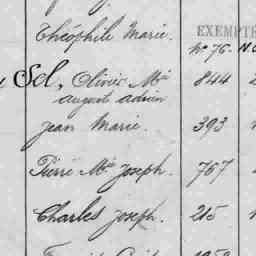 Théophile Marie.
EXEMPTÉ
No 76
Sol, Olivier Mie 844
august adrien
Jean Marie. 393
Pierre Mie Joseph. 767
Charles Joseph. 215